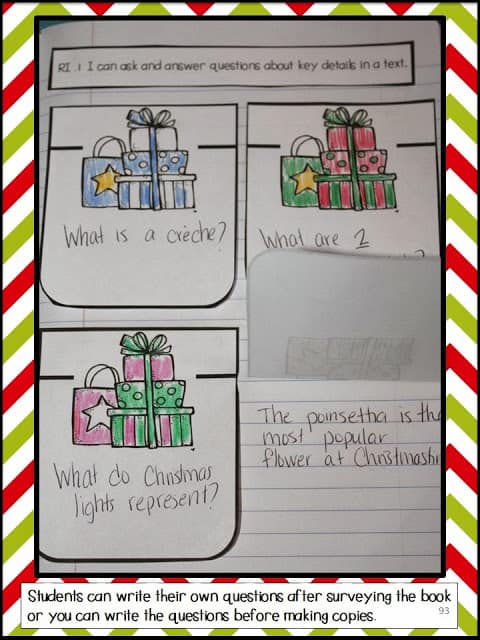 RI .1 I can ask and answer questions about key details in a text.
What is a crèche?
What are 2
What do Christmas
lights represent?
The poinsetha is the
most popular
flower at Christmas
Students can write their own questions after surveying the book
or you can write the questions before making copies.
93